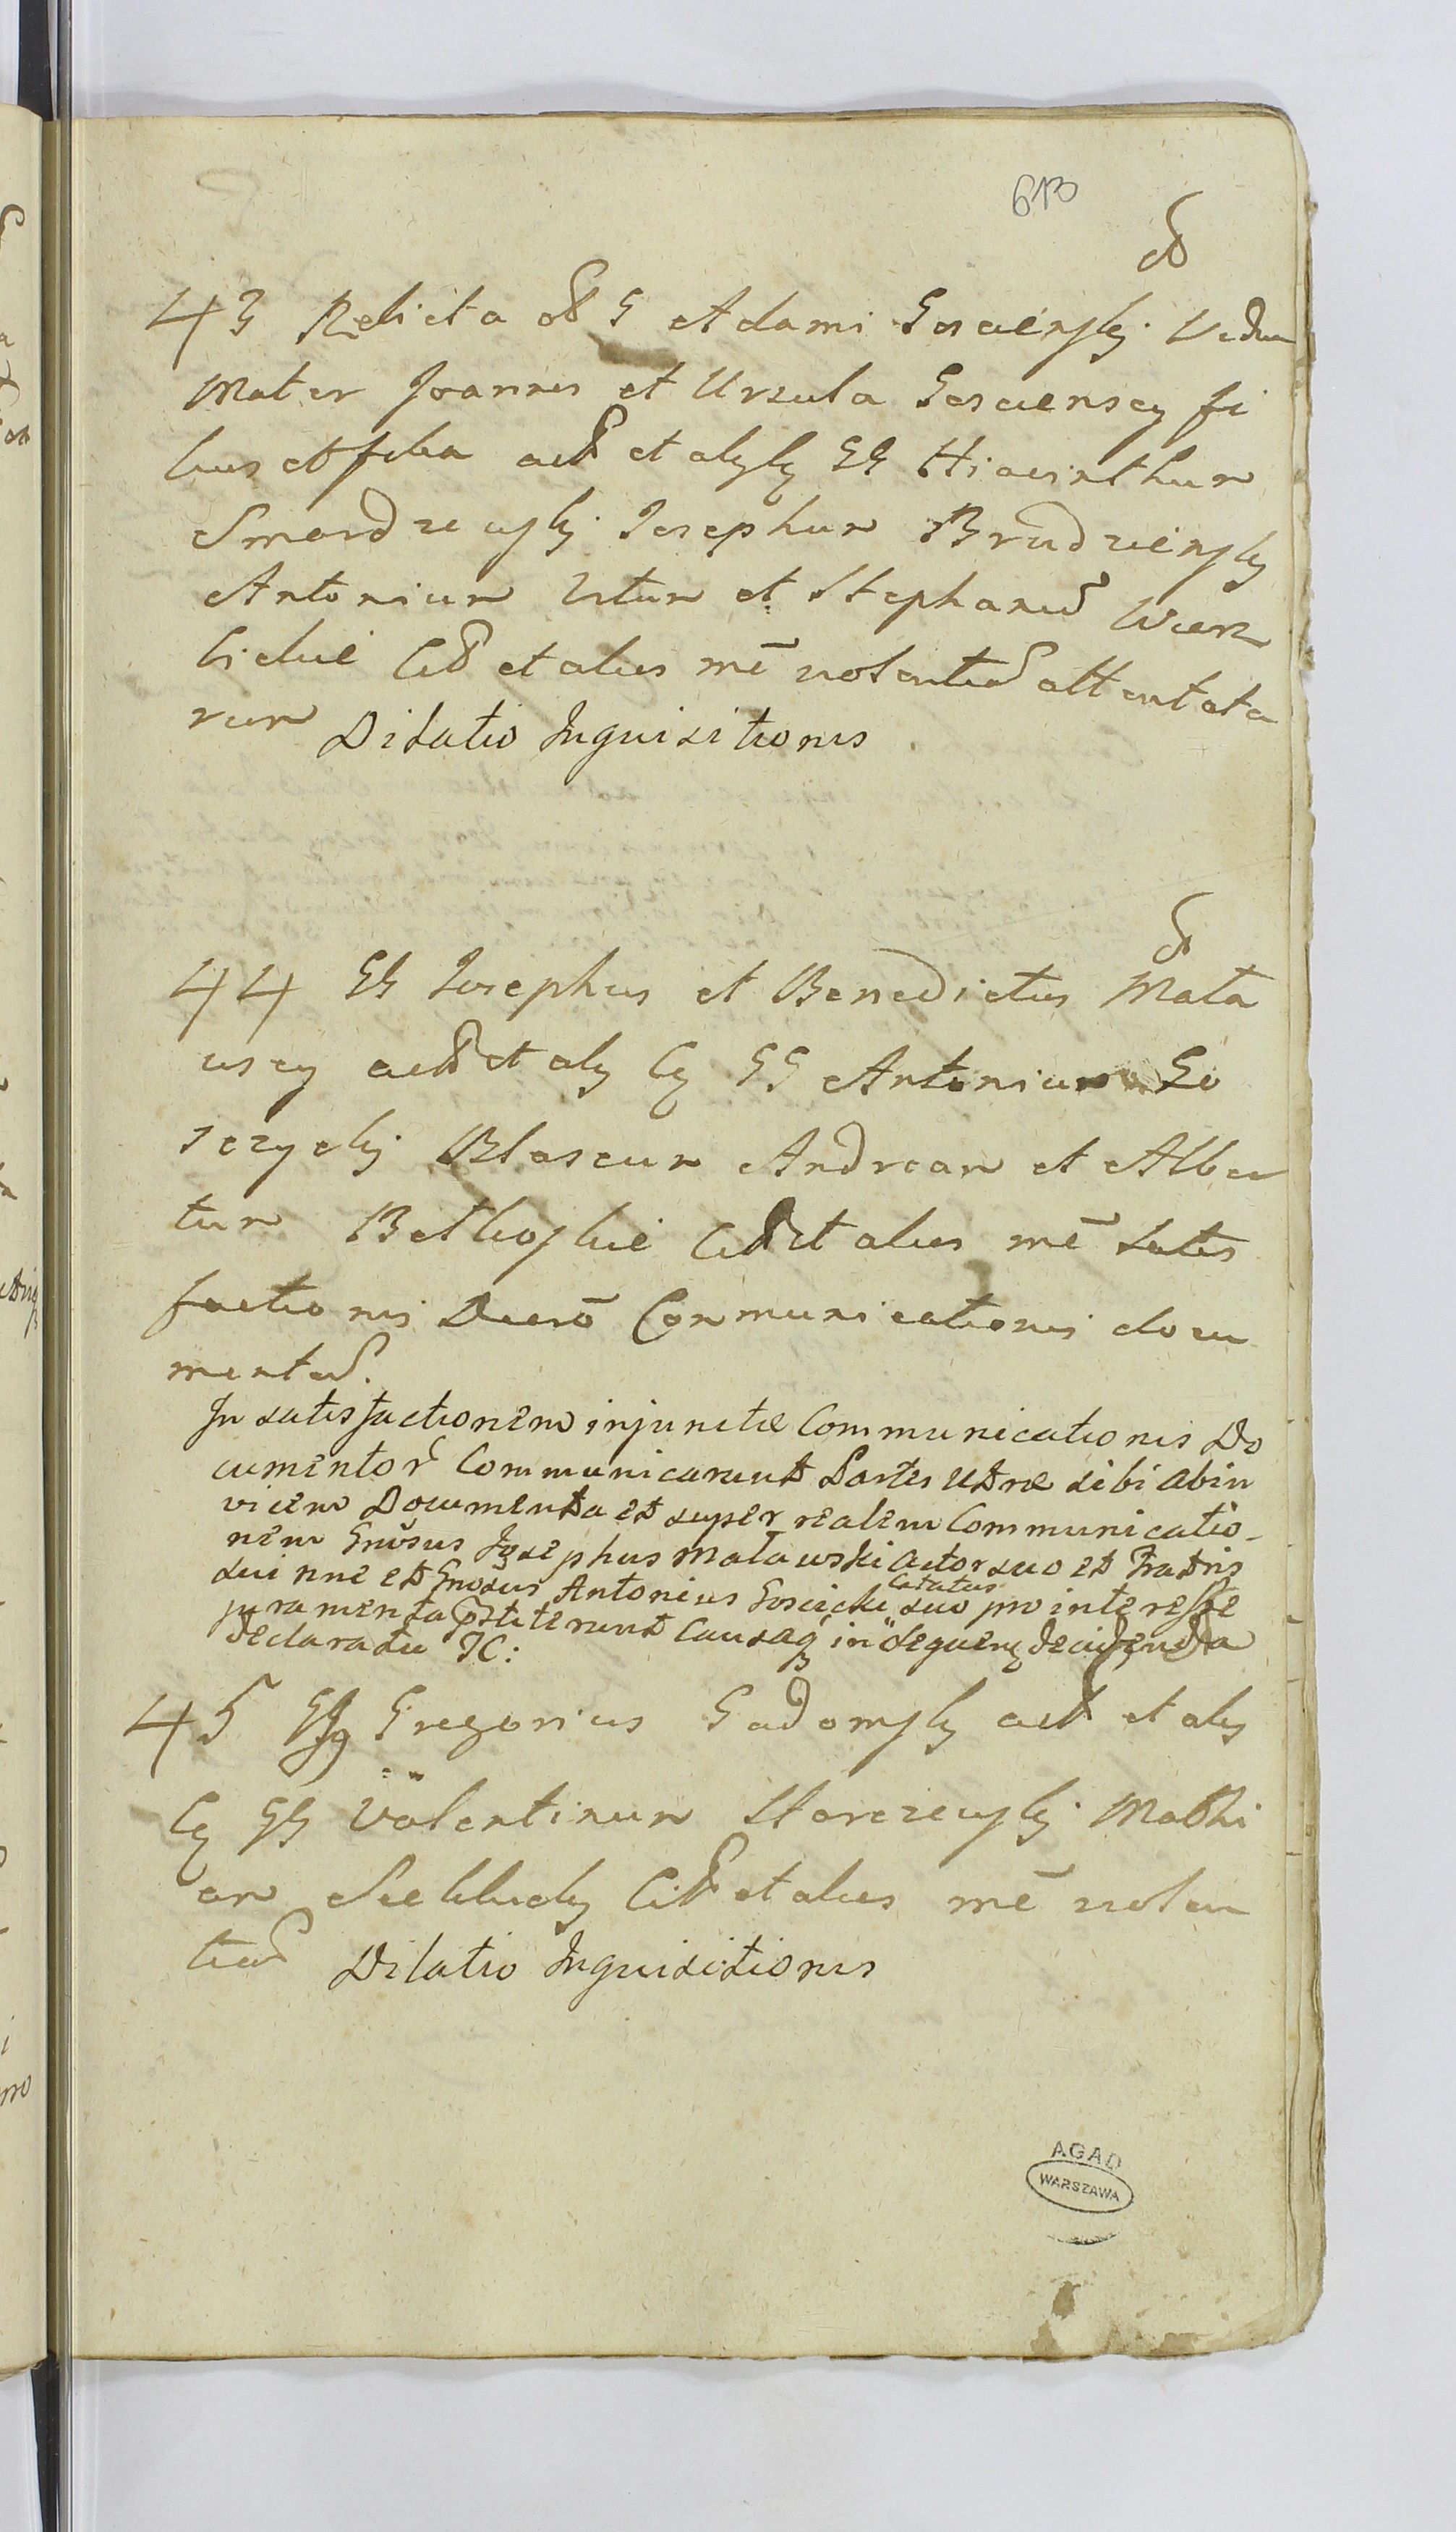 613
43 Relicta ol G Adami Gosciensky Vidua
Mater Joannes et Ursula Goscienscy fi
lius et filia act et alij Cq GG Hiacinthum
Smardzewsky Josephum Brudziensky
Antonium Vitum et Stephanum Wierz
bickie Cit et alios mē violentiar attentata
rum Dilatio Inquisitionis
44 GG Josephus et Benedictus Mata
wscy act et alij Cq GG Antonium Go
Blasium Andream et Alber
tum Cit et alios mē satis
factionis Decrō Communicationis docu
mentor.
In satisfactionem injunctæ Communicationis Do
cumentor Communicarunt Partes Utræ sibi abin
vicem Documenta et super realem Communicatio-
nem Gnōsus Josephus Matawski Actor suo et Fratris
sui nne et Gnosus Antonius Goscicki Citatus suo pro interesse
juramenta p̄stiterunt Causaq in sequenq decidenda
declaratu JC:
45 GG Gregorius Gadomsky act et alij
Cq GG Valentinum Mathi
am Cit et alios mē violen
tiar Dilatio Inquisitionis
AGAD
WARSZAWA